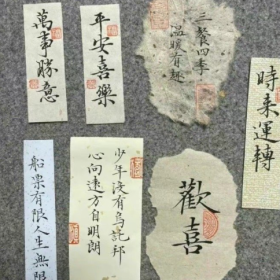 萬事勝意
平安喜樂
三餐四季
溫暖有趣
時来運轉
船票有限人生無限
少年没有烏託邦
心向遠方自明朗
歡喜